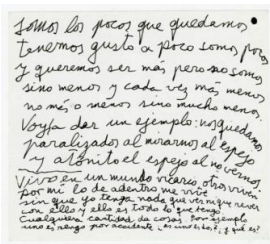 somos los pocos que quedamos
tenemos gusto a poco somos pocos
y queremos ser más pero no somos
sino menos y cada vez más menos
no más o menos sino mucho menos.
Voy a dar un ejemplo: nos quedamos
paralizados al mirarnos al espejo
y atónito el espejo al no vernos.
Vivo en un mundo vicario, otros viven
por mí lo de adentro me vive
sin que yo tenga nada que ver ni que vencer
con ello y ello es todo lo que tengo
cualquier cantidad de cosas. Por ejemplo
uno es negro por accidente,